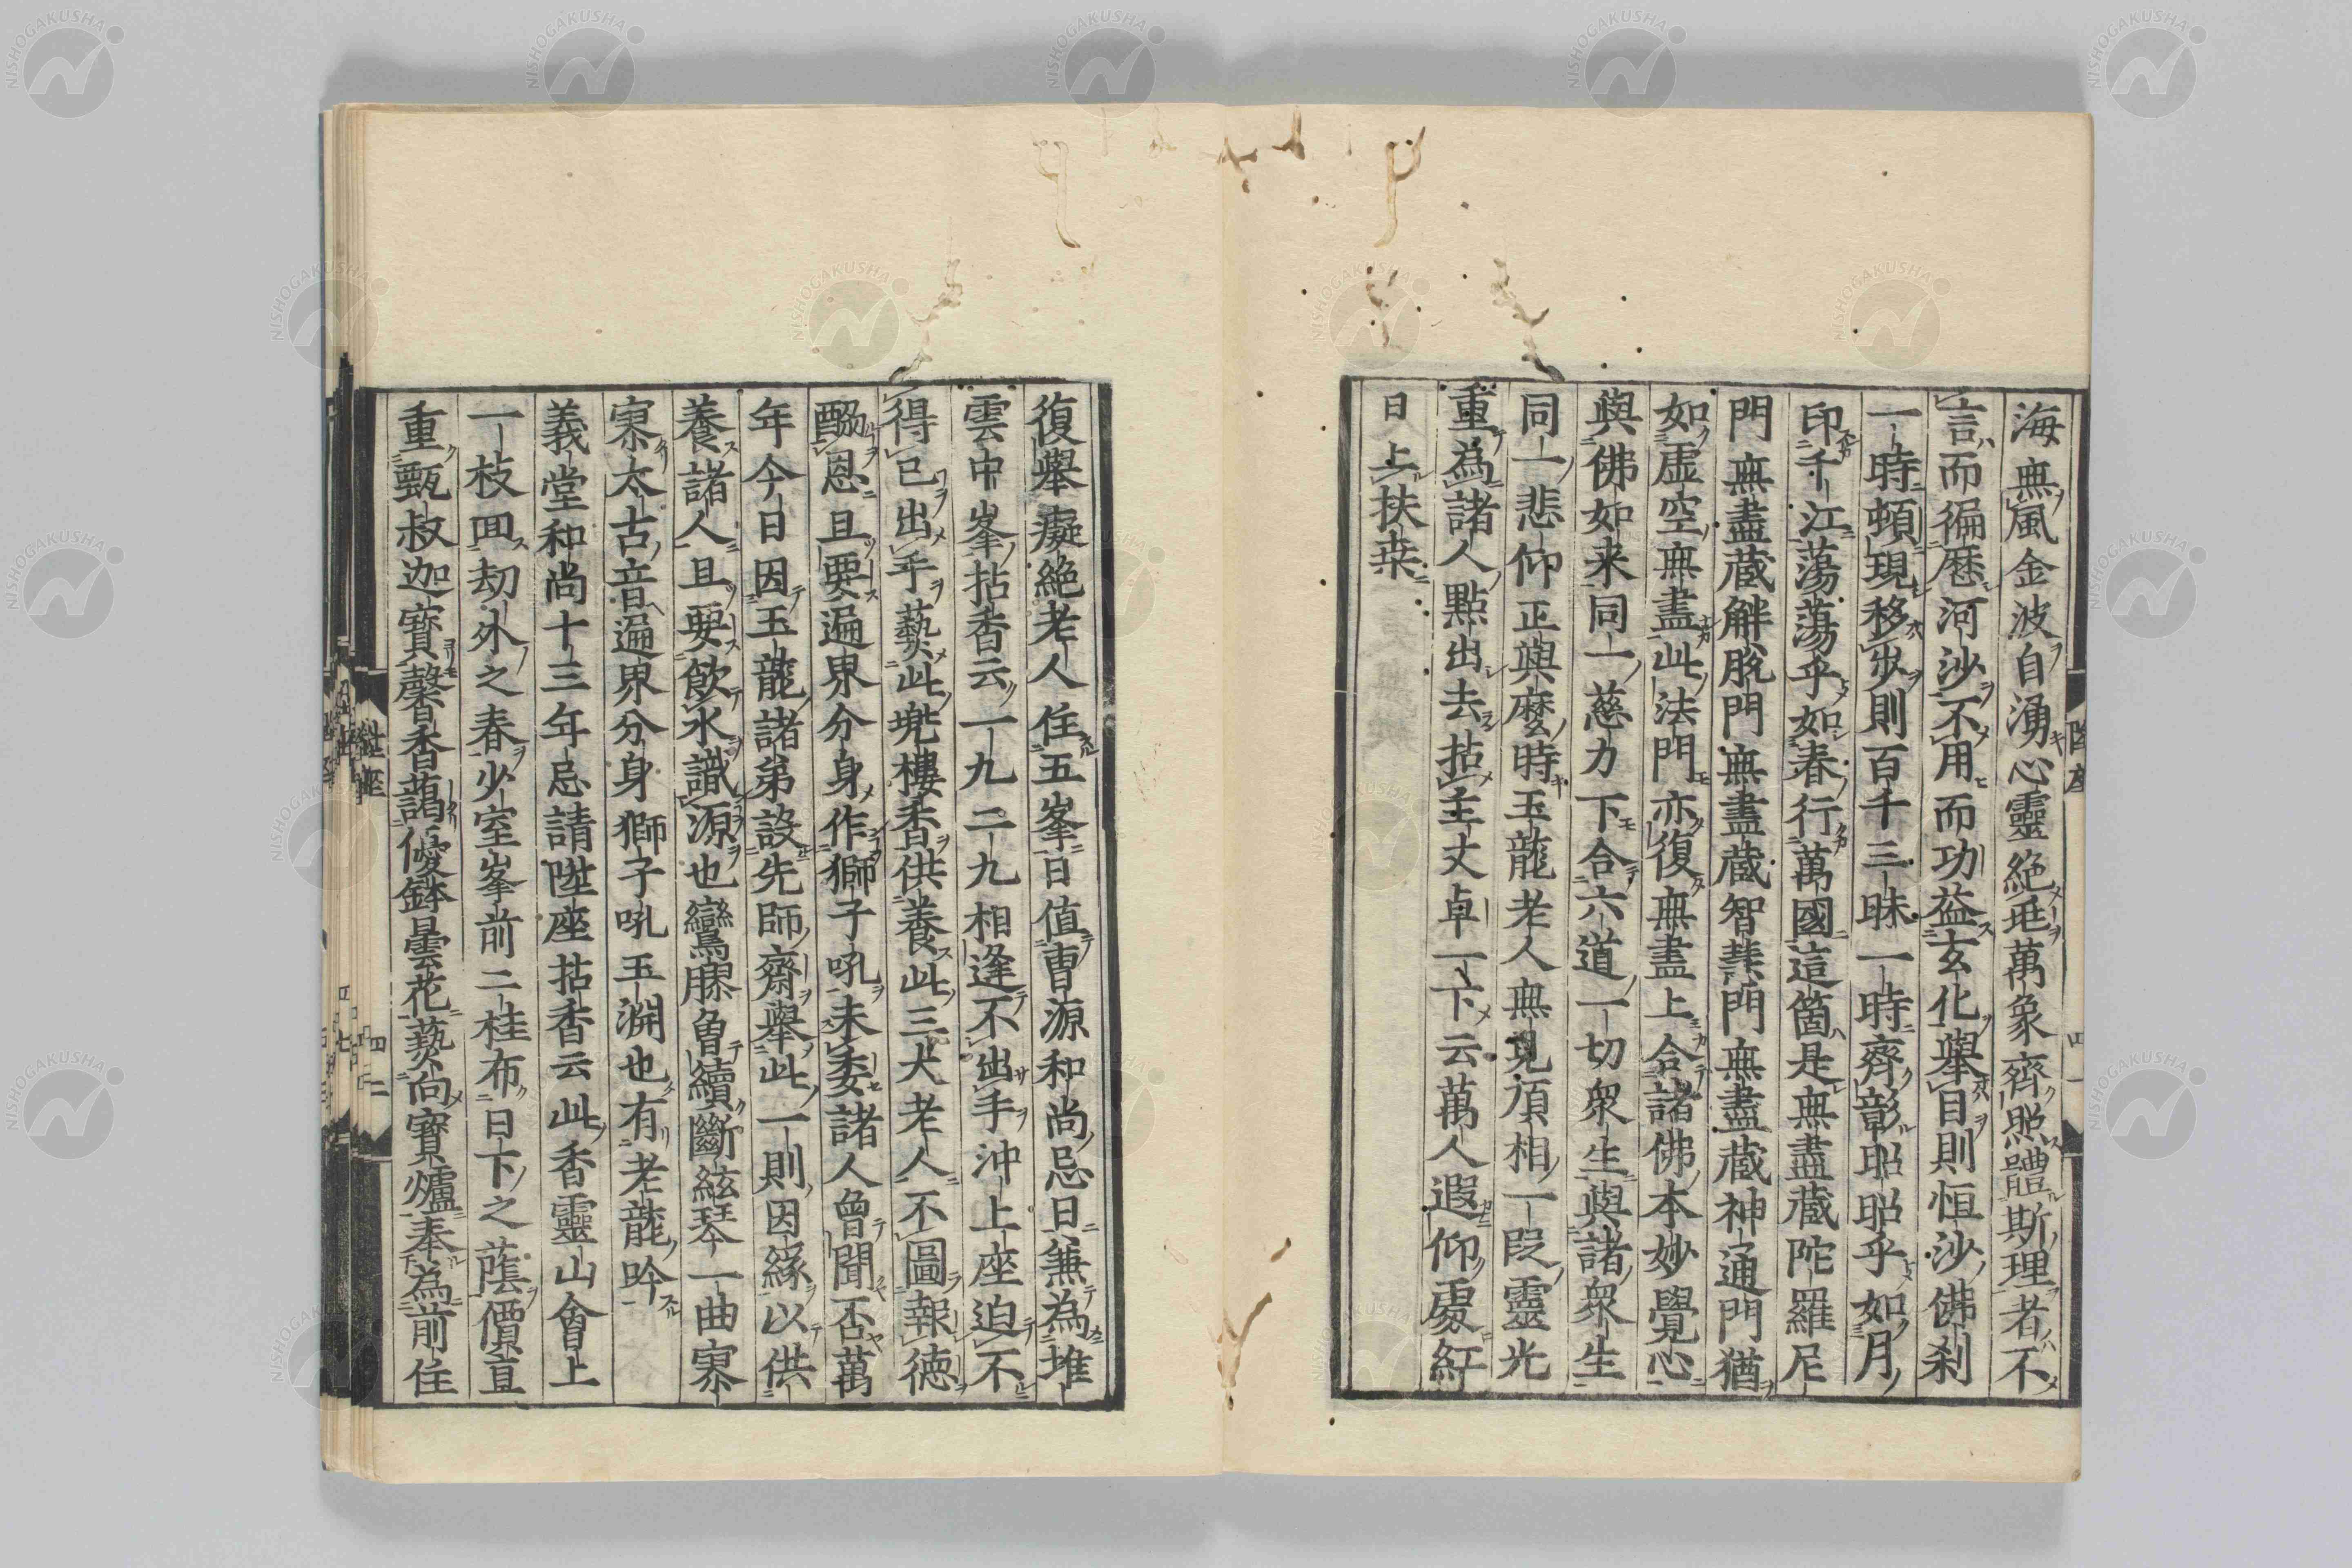 海無風金波自湧心靈絶兆萬象齊照體斯理者不
言而徧暦河沙不用而功益玄化舉目則恒沙佛刹
一時頓現移歩則百千三昧一時齊彰昭昭乎如月
印千江蕩蕩乎如春行萬國這箇是無盡藏陀羅尼
門無盡藏解脱門無盡藏智慧門無盡藏神通門猶
如虚空無盡此法門亦復無盡上合諸佛本妙覺心
與佛如来同一慈力下合六道一切衆生與諸衆生
同一悲仰正與麼時玉龍老人無見頂相一段靈光
重為諸人點出去拈主丈卓一下云萬人遐仰處紅
日上扶桒
陞座
四一
復舉癡絶老人住五峯日値曹源和尚忌日兼為堆
雲中峯拈香云一九二九相逢不出手沖上座迫不
得已出手爇此兜樓香供養此三犬老人不圖報德
酬恩且要遍界分身作獅子吼未委諸人曾聞否萬
年今日因玉龍諸弟設先師齋舉此一則因緣以供
養諸人且要飲水識源也鸞膠曾續斷絃琴一曲寥
寥太古音遍界分身獅子吼玉淵也有老龍吟
義堂和尚十三年忌請陞座拈香云此香靈山會上
一枝囬劫外之春少室峯前二桂布日下之蔭價直
重甄叔迦寶馨香藹優鉢曇花爇向寶爐奉為前住
陞座
四二
NISHOGAKUSHA